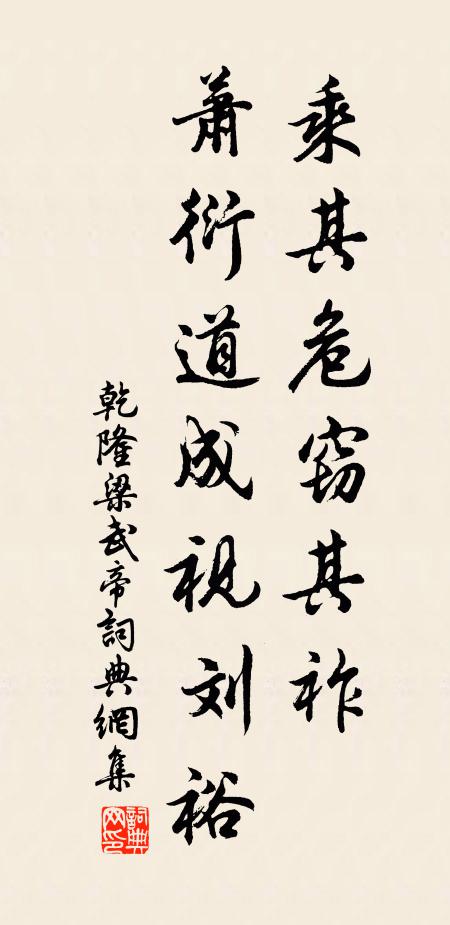 乘其危窃其祚
萧衍道成视刘裕
乾隆梁武帝詞典網集
詞典网印